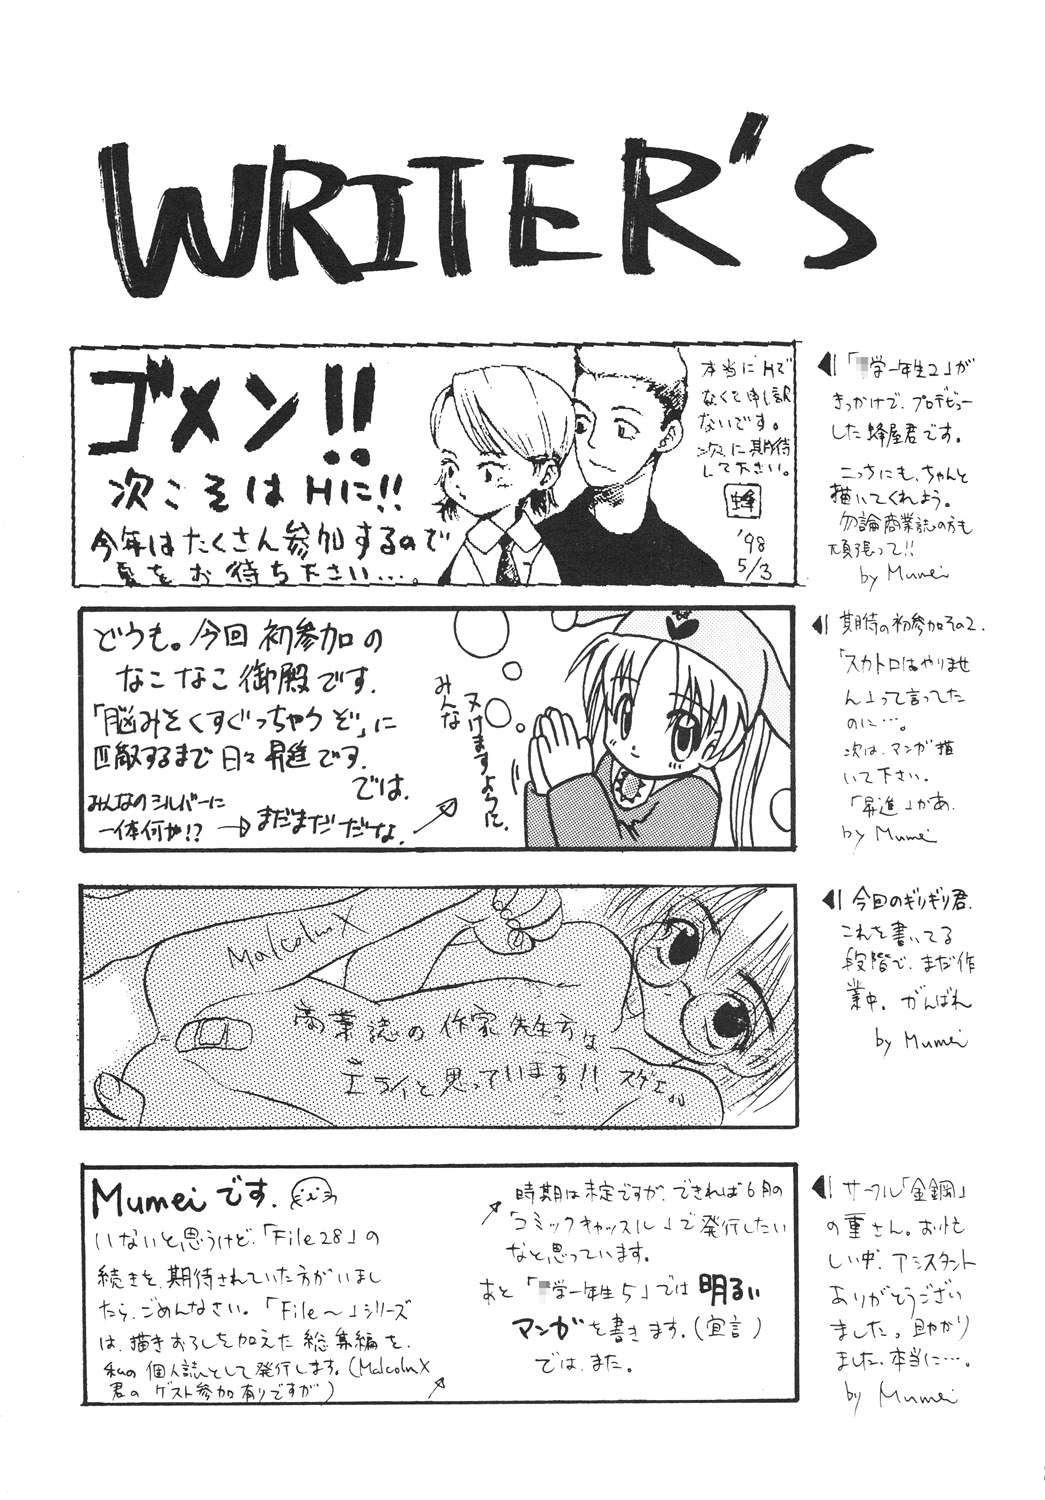 WRITER'S
ゴメン!!
次こそはHに!!
今年はたくさん参加するので
夏をお待ち下さい…。
本当にHで
なくて申し訳
ないです。
次に期待
して下さい。
蜂
'98
5/3
学一年生2」が
きっかけで、プロデビュー
した蜂屋君です。
こっちにも、ちゃんと
描いてくれよう。
勿論商業誌の方も
頑張って!!
by Mumei
どうも。今回初参加の
なこなこ御殿です.
「脳みそくすぐっちゃうぞ」に
匹敵するまで日々昇進です.
では.
みんなのシルバーに
一体何が!?
→まだまだだな.
みんな
ヌけますように.
期待の初参加その2.
「スカトロはやりませ
ん」って言ってた
のに…。
次は、マンガ描
いて下さい。
「昇進」かあ.
by Mumei
Malcolm X
商業誌の作家先生方は
エライと思っています!!
スゲェ。
今回のギリギリ君.
これを書いてる
段階で、まだ作
業中. がんばれ
by Mumei
Mumeiです.
いないと思うけど、「File 28」の
続きを、期待されていた方がいまし
たら、ごめんなさい。「File〜」シリーズ
は、描きおろしを加えた総集編を、
私の個人誌として発行します。(Malcolm X
君のゲスト参加有りですが)
時期は未定ですが、できれば6月の
「コミックキャッスル」で発行したい
なと思っています。
あと「学一年生5」では明るい
マンガを書きます。(宣言)
では、また。
サークル「金鋼」
の重さん。お忙
しい中、アシスタント
ありがとうござい
ました。助かり
ました、本当に…。
by Mumei